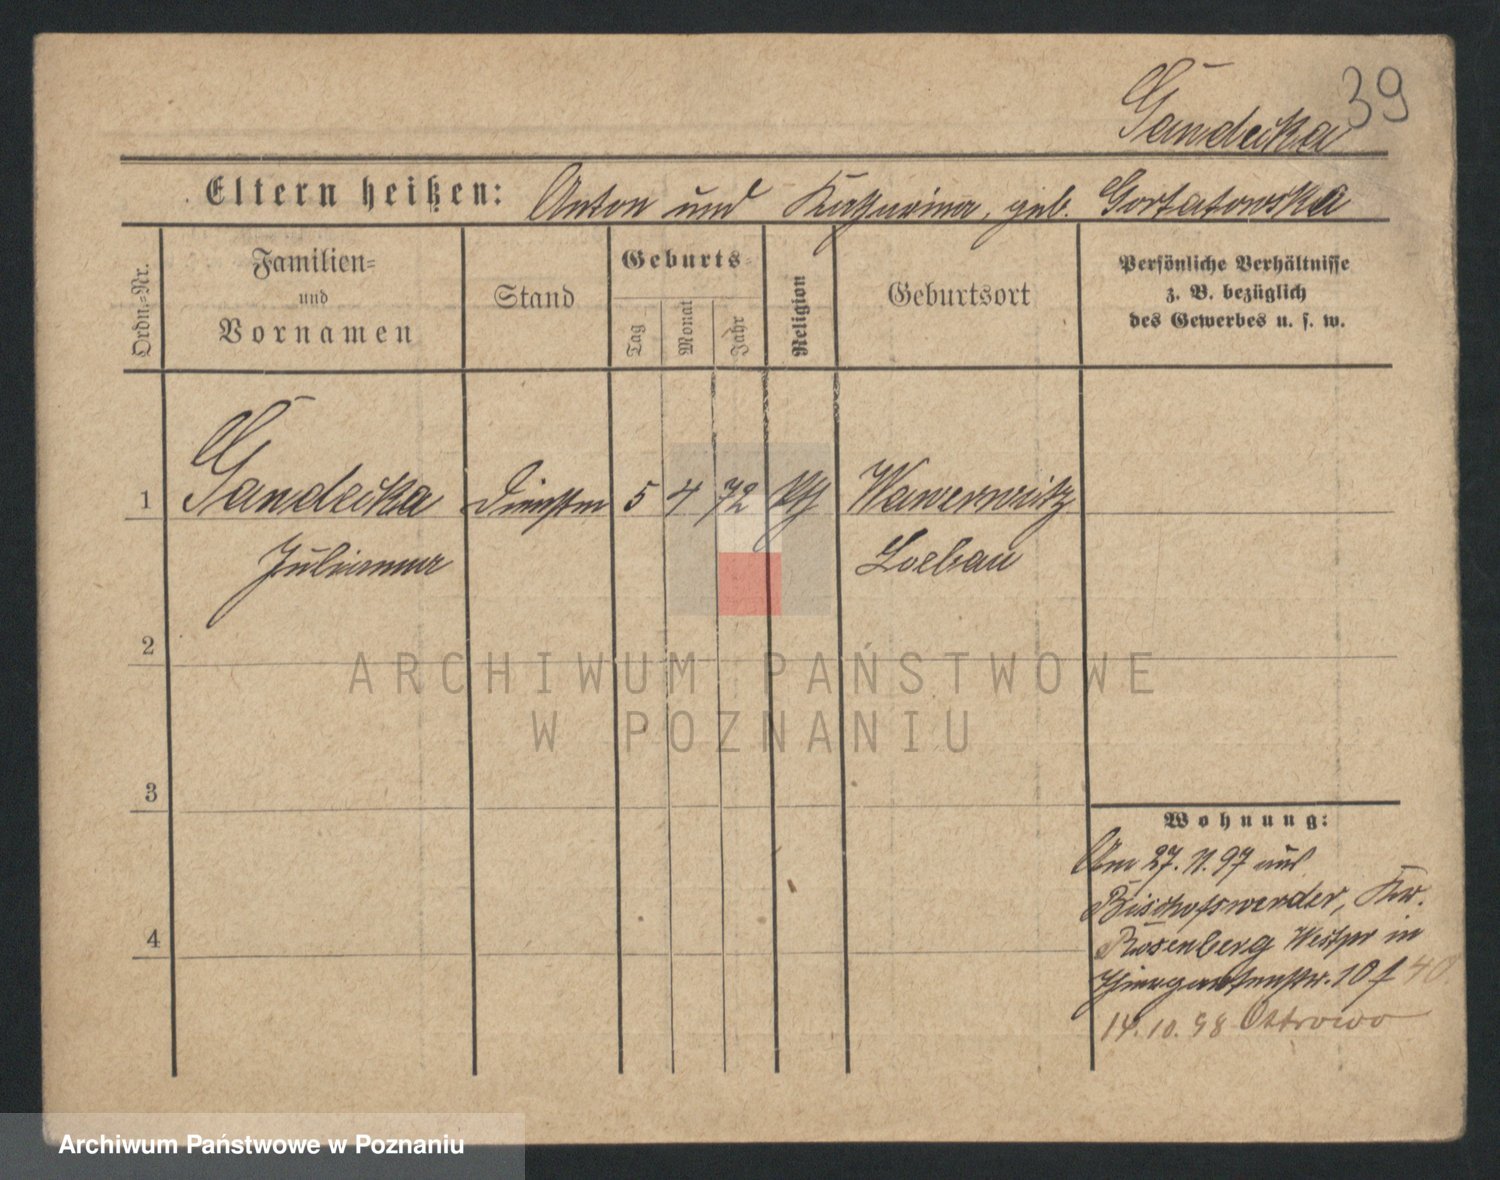 39
Gandecka
Eltern heißen: Anton und Katharina, geb. Gortatowska
Ordn.=Nr.
Familien=
und
Vornamen
Stand
Geburts=
Tag
Monat
Jahr
Religion
Geburtsort
Persönliche Verhältnisse
z. B. bezüglich
des Gewerbes u. s. w.
1 Gandecka 5 4 72 kth Wawerwitz
Julianna Loebau
2
ARCHIWUM PAŃSTWOWE
W POZNANIU
3
Wohnung:
Am 27. 11. 97 aus
Bischofswerder, Kr.
4
Rosenberg Westpr in
Thiergartenstr. 10 f 40
14. 10. 98 Ostrowo
Archiwum Państwowe w Poznaniu